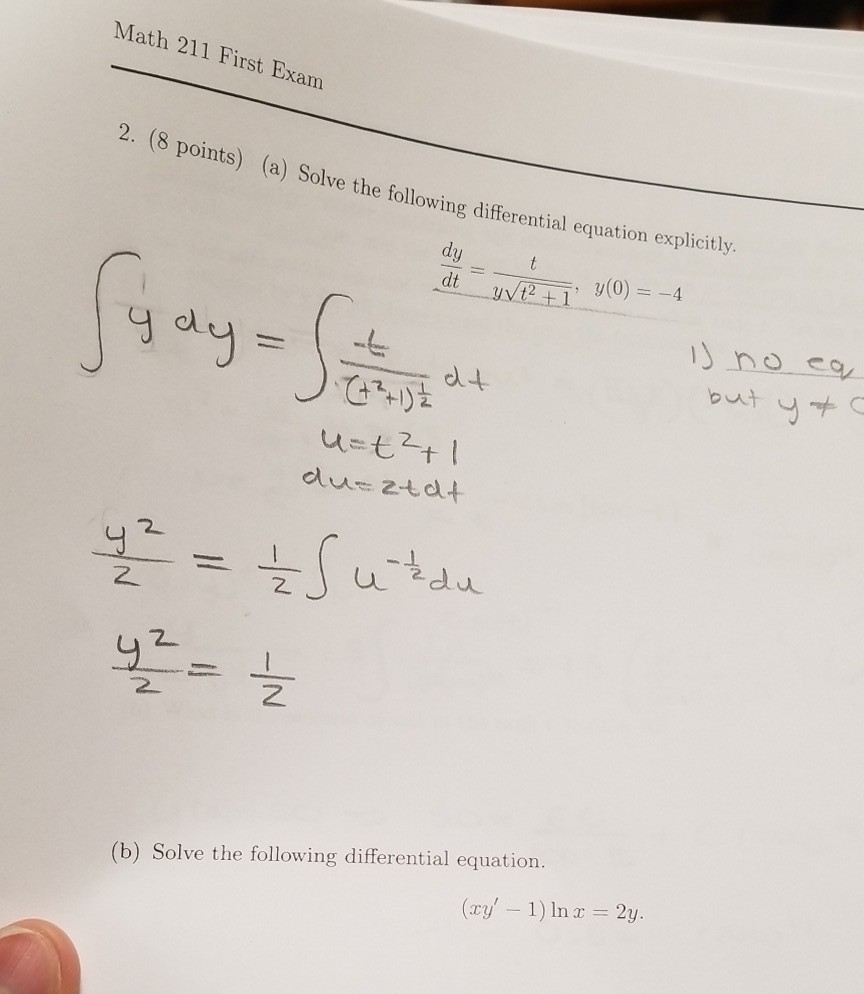 Math 211 First Exam
2. (8 points) (a) Solve the following differential equation explicitly.
dy/dt = t/(y√(t² + 1)), y(0) = −4
∫ y dy = ∫ t/(t²+1)^(1/2) dt
1) no eq
but y ≠
u = t² + 1
du = 2t dt
y²/2 = 1/2 ∫ u^(-1/2) du
y²/2 = 1/2
(b) Solve the following differential equation.
(xy′ − 1) ln x = 2y.